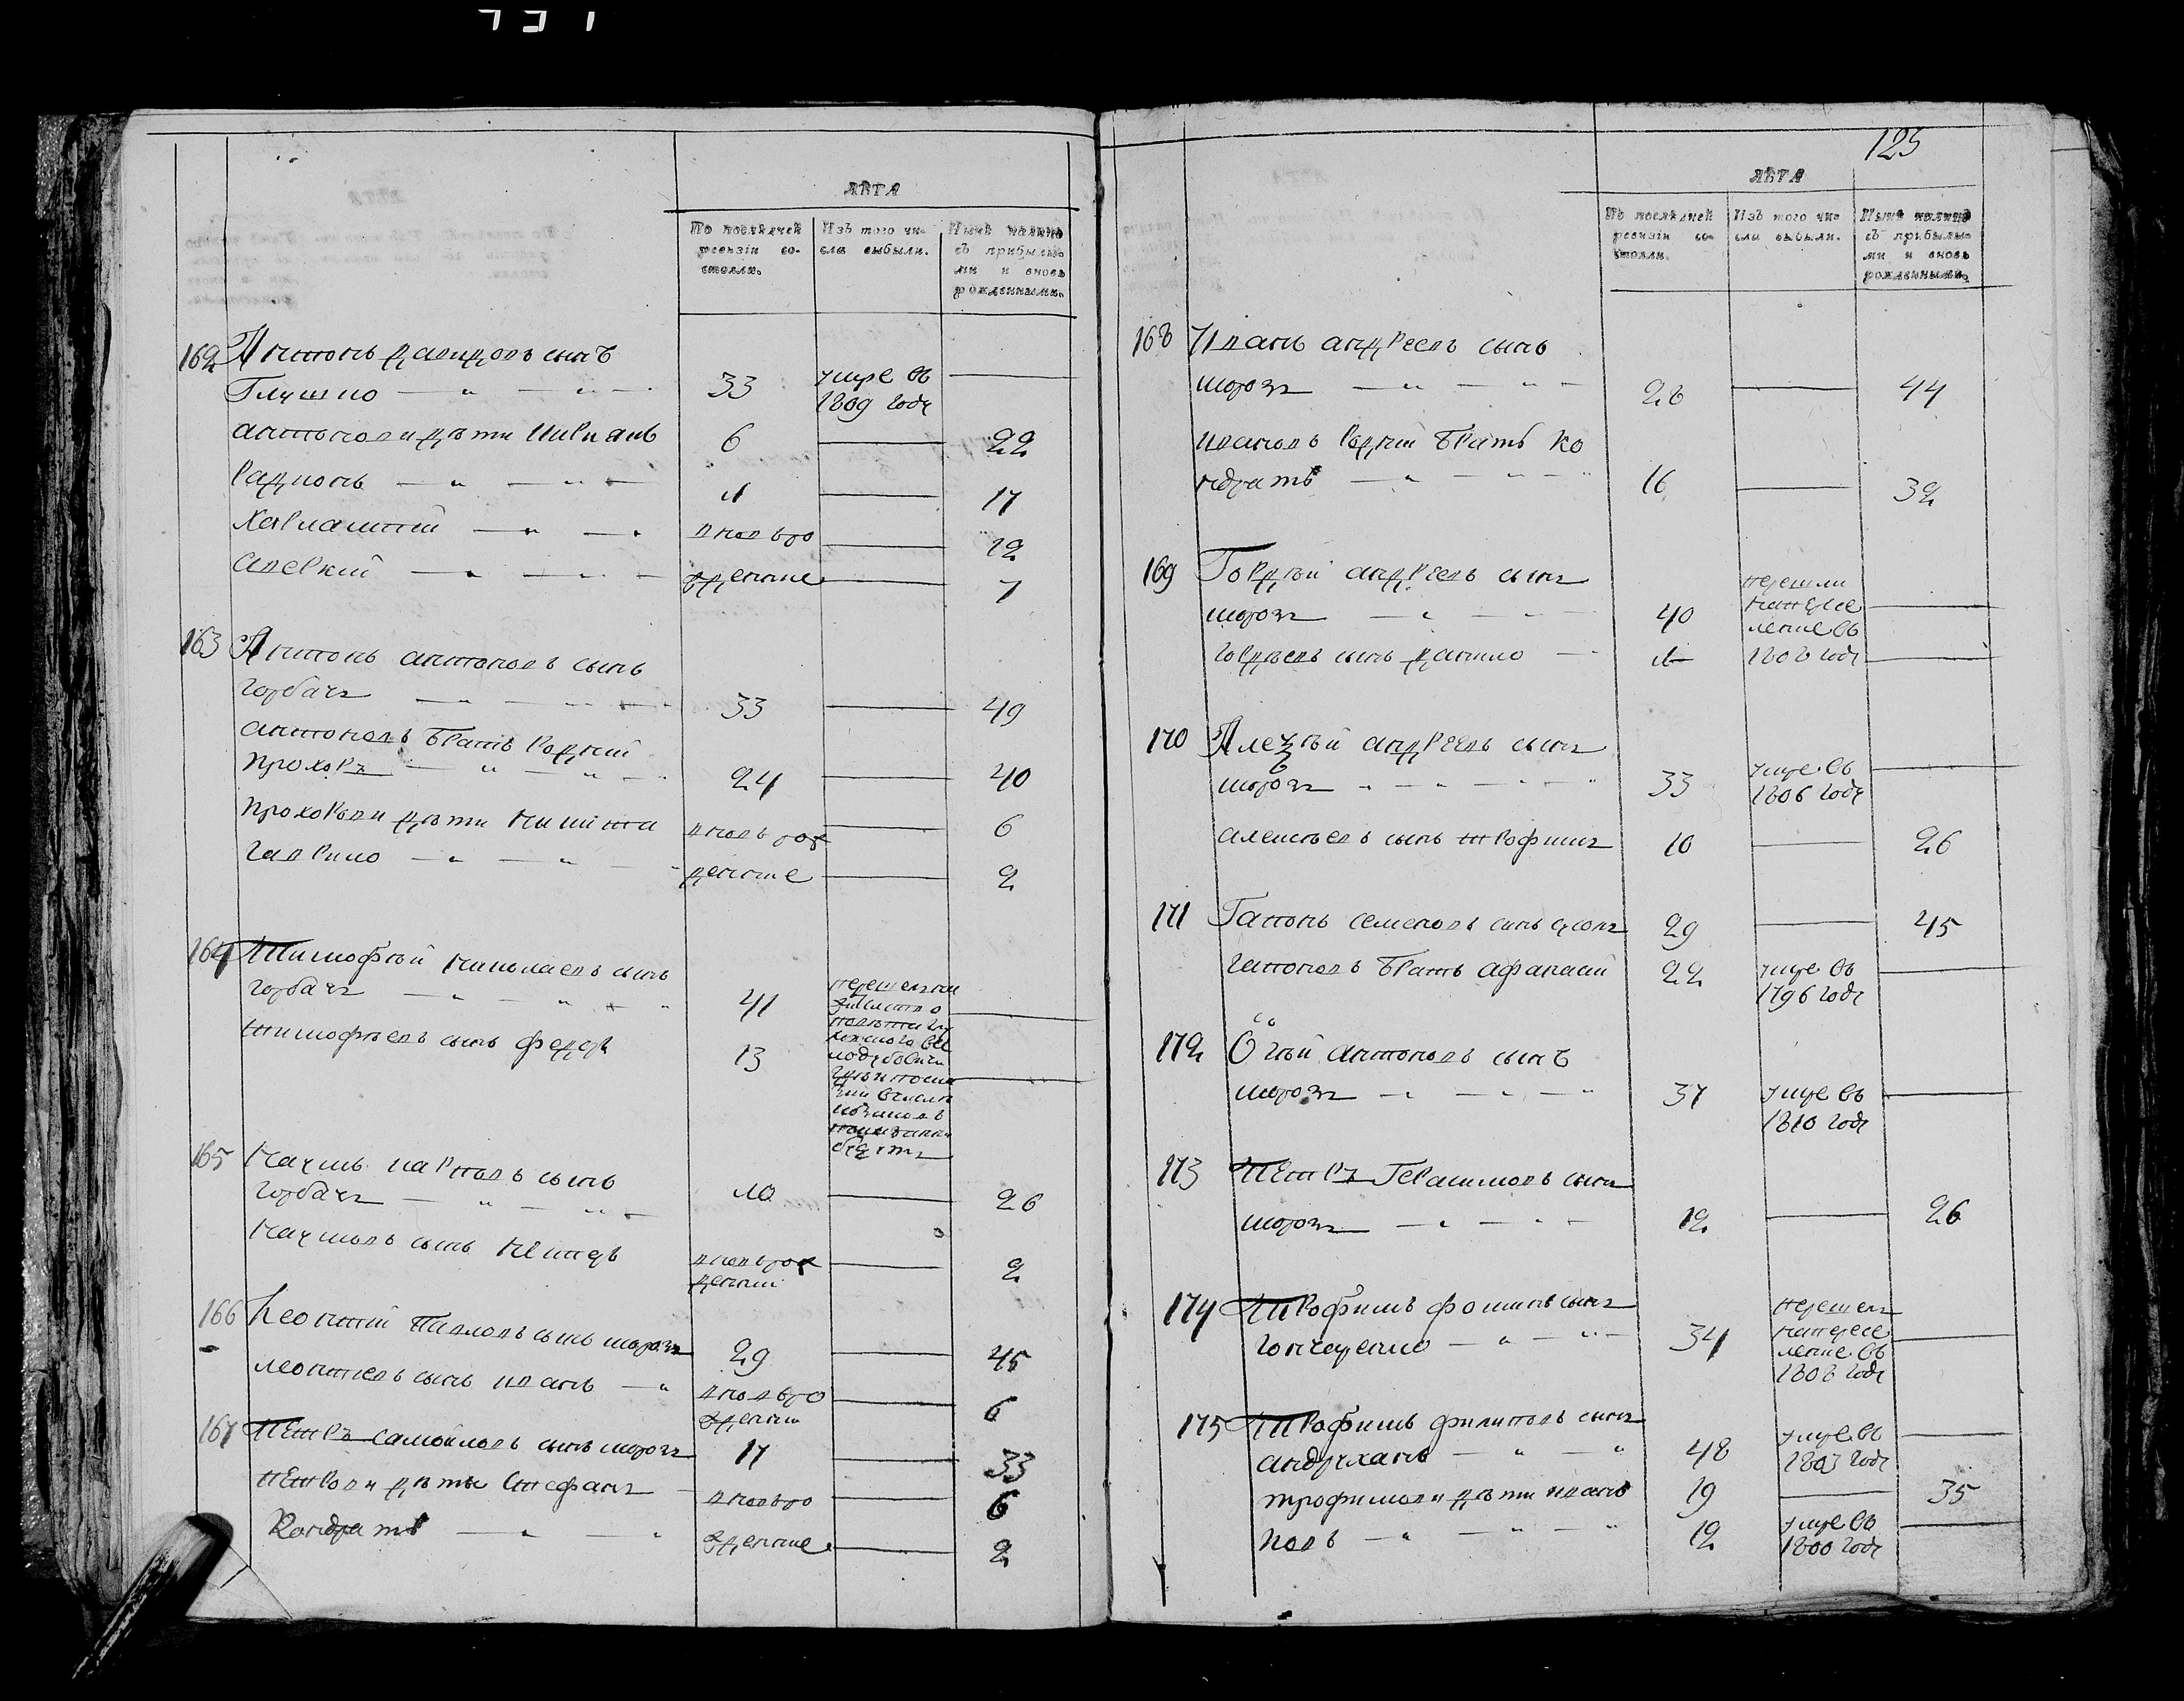 ЛѢТА
По послѣдней ревизіи состояли.
Изъ того числа выбыли.
Нынѣ налицо съ прибылыми и вновь рожденными.
162 Антонъ давидовъ сынъ
Глушко — " — " — 33 умре въ —
1809 году
антонови дѣти Кирианъ 6 — 22
Радионъ — " — " — 1 — 17
Харлампий — " — " вновьро — 12
Аверкий — " — " — жденные — 7
163 Антонъ антоновъ сынъ
горбачъ — " — " — 33 — 49
антоновъ братъ родний
прохоръ — " — " — 24 — 40
прохорови дѣти никита вновьрож — 6
гаврило — " — " — денние — 2
164 Тимофѣй николаевъ сынъ
горбачъ — " — " — " 41 —
тимофѣевъ сынъ федоръ 13 —
будутъ
165 Наумъ карповъ сынъ
горбачъ — " — " — 10 — 26
наумовъ сынъ
вновьрож — 2
денний
166 Леонтий Павловъ сынъ морозъ 29 — 45
леонтиевъ сынъ иванъ — " вновьро — 6
жденни
167 Петръ самойловъ сынъ морозъ 17 — 33
петрови дѣти Стефанъ — вновьро — 6
Кондратъ — " — " жденние — 2
125
ЛѢТА
По послѣдней ревизіи состояли.
Изъ того числа выбыли.
Нынѣ налицо съ прибылыми и вновь рожденными.
168 Иванъ андреевъ сынъ
морозъ — " — " — 28 — 44
ивановъ родний братъ Ко
ндратъ — " — " — " 16 — 32
169 Гордѣй андреевъ сынъ
морозъ — " — " — 40 перешли —
на пересе
ление въ
гордѣевъ сынъ данило — 1 1808 году —
170 Алексѣй андреевъ сынъ
морозъ " — " — " — " 33 умре въ —
1806 году
алексѣевъ сынъ трофимъ 10 — 26
171 Гапонъ семеновъ синъ 29 — 45
гапоновъ братъ афанасий 22 умре въ —
1796 году
172 антоновъ сынъ
морозъ — " — " — " 37 умре въ —
1810 году
173 Петръ Герасимовъ сынъ
морозъ — " — " — 12 — 26
174 Трофимъ фоминъ сынъ
гончаренко — " — " — 34 перешелъ
на пересе —
ление въ
1808 году
175 Трофимъ филиповъ сынъ
андруханъ — " — " 48 умре въ —
1803 году
трофимови дѣти иванъ 19 — 35
яковъ — " — " — " 12 умре въ —
1800 году